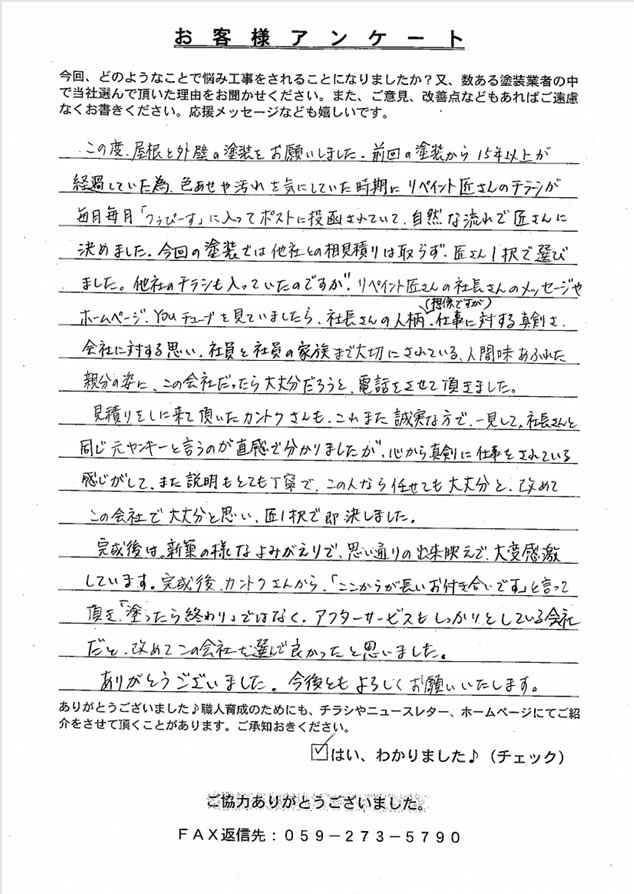 お客様アンケート
今回、どのようなことで悩み工事をされることになりましたか？又、数ある塗装業者の中
で当社選んで頂いた理由をお聞かせください。また、ご意見、改善点などもあればご遠慮
なくお書きください。応援メッセージなども嬉しいです。
この度、屋根と外壁の塗装をお願いしました。前回の塗装から15年以上が
経過していた為、色あせや汚れを気にしていた時期にリペイント匠さんのチラシが
毎月毎月「つぅぴーす」に入ってポストに投函されていて、自然な流れで匠さんに
決めました。今回の塗装では他社との相見積りは取らず、匠さん1択で選び
ました。他社のチラシも入っていたのですが、リペイント匠さんの社長さんのメッセージや
ホームページ、Youチューブを見ていましたら、社長さんの人柄、(想像ですが)仕事に対する真剣さ、
会社に対する思い、社員と社員の家族まで大切にされている、人間味あふれた
親分の姿に、この会社だったら大丈夫だろうと、電話をさせて頂きました。
見積りをしに来て頂いたカントクさんも、これまた誠実な方で、一見して、社長さんと
同じ元ヤンキーと言うのが直感で分かりましたが、心から真剣に仕事をされている
感じがして、また説明もとても丁寧で、この人なら任せても大丈夫と、改めて
この会社で大丈夫と思い、匠1択で即決しました。
完成後は、新築の様なよみがえりで、思い通りの出来映えで、大変感激
しています。完成後、カントクさんから、「ここからが長いお付き合いです」と言って
頂き、「塗ったら終わり」ではなく、アフターサービスもしっかりとしている会社
だと、改めてこの会社で選んで良かったと思いました。
ありがとうございました。今後ともよろしくお願いいたします。
ありがとうございました♪職人育成のためにも、チラシやニュースレター、ホームページにてご紹
介をさせて頂くことがあります。ご承知おきください。
はい、わかりました♪（チェック）
ご協力ありがとうございました。
FAX返信先：059－273－5790